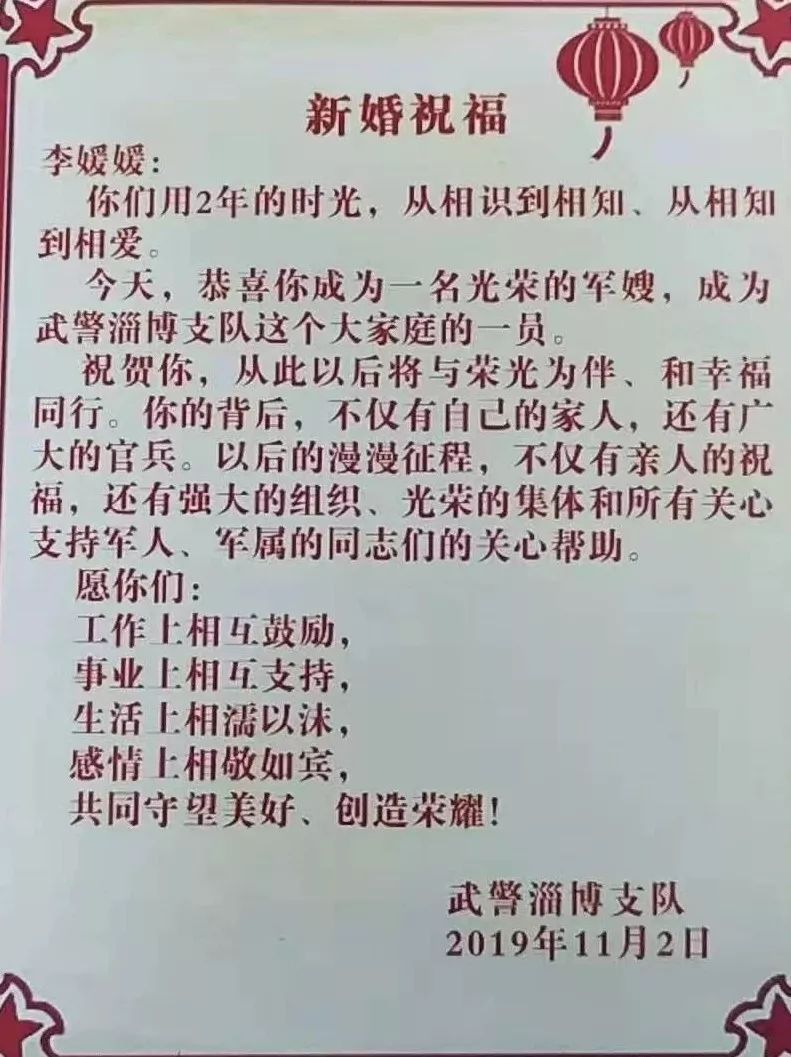 新婚祝福
李媛媛：
你们用2年的时光，从相识到相知、从相知
到相爱。
今天，恭喜你成为一名光荣的军嫂，成为
武警淄博支队这个大家庭的一员。
祝贺你，从此以后将与荣光为伴、和幸福
同行。你的背后，不仅有自己的家人，还有广
大的官兵。以后的漫漫征程，不仅有亲人的祝
福，还有强大的组织、光荣的集体和所有关心
支持军人、军属的同志们的关心帮助。
愿你们：
工作上相互鼓励，
事业上相互支持，
生活上相濡以沫，
感情上相敬如宾，
共同守望美好、创造荣耀！
武警淄博支队
2019年11月2日